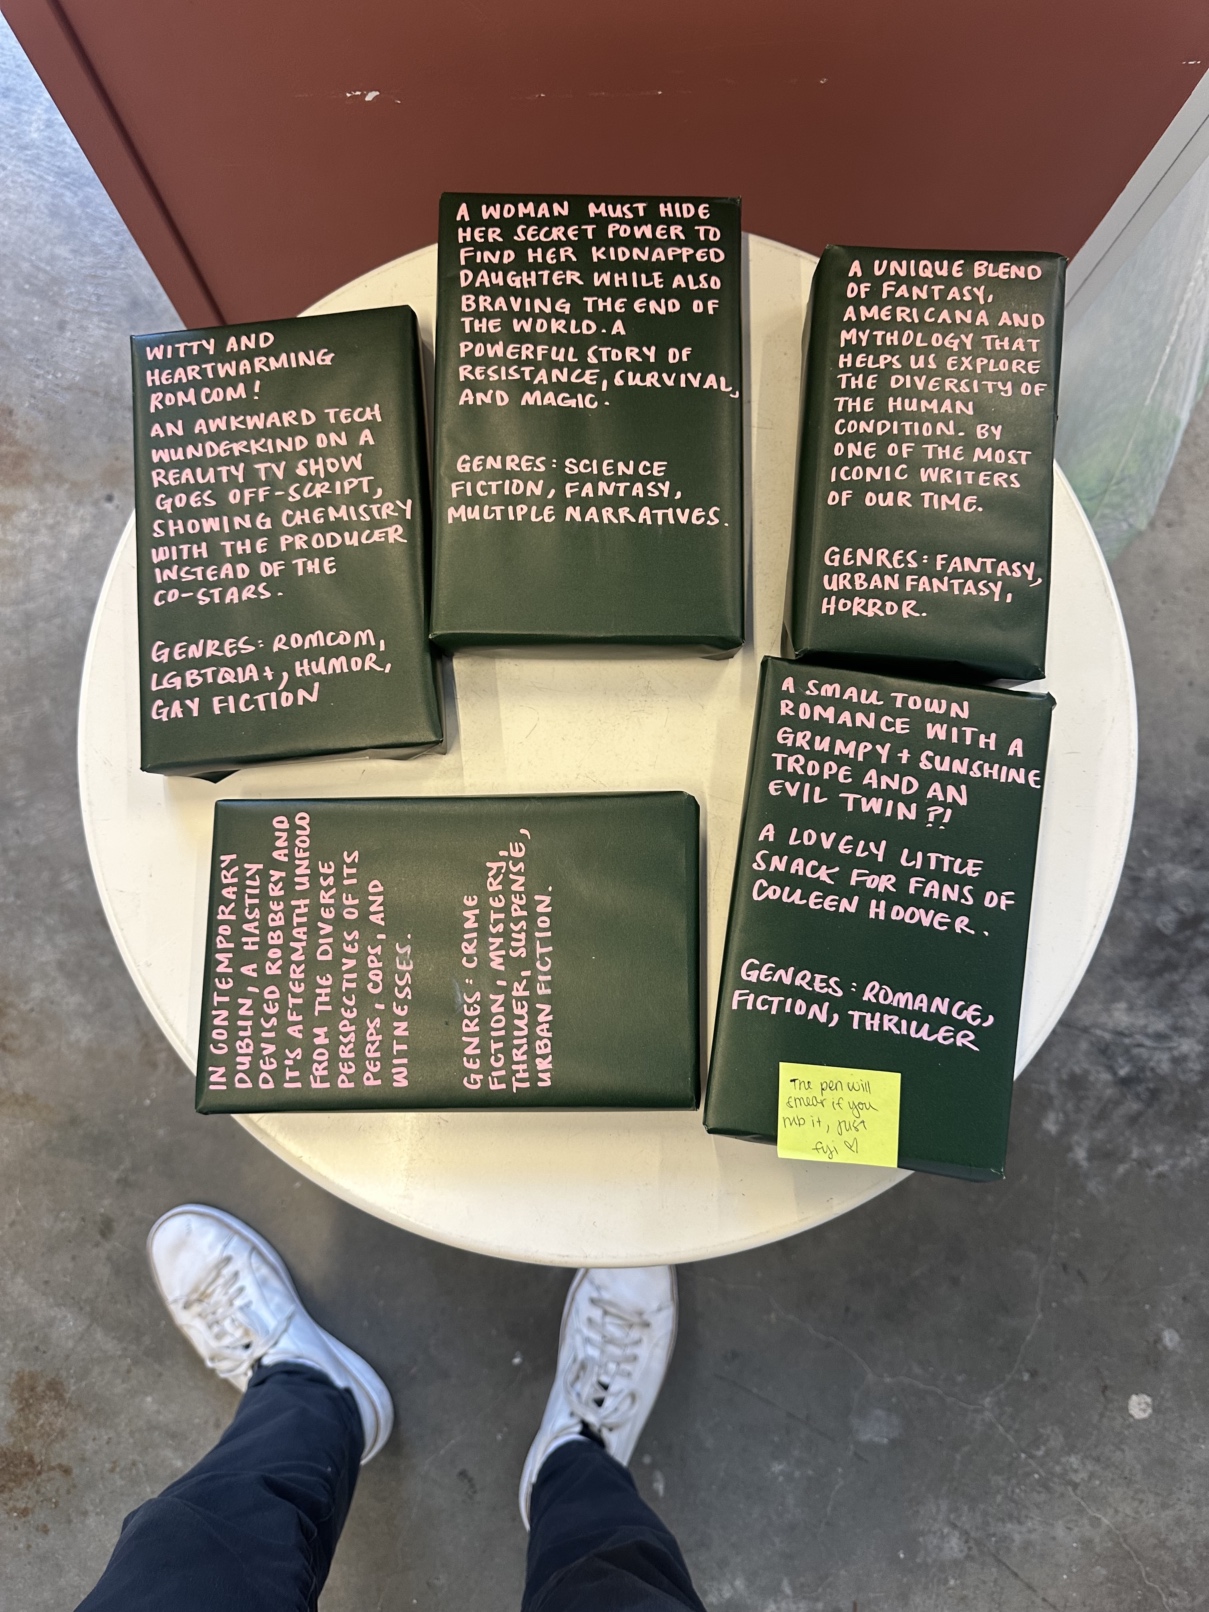 WITTY AND
HEARTWARMING
ROMCOM!
AN AWKWARD TECH
WUNDERKIND ON A
REALITY TV SHOW
GOES OFF-SCRIPT,
SHOWING CHEMISTRY
WITH THE PRODUCER
INSTEAD OF THE
CO-STARS.
GENRES: ROMCOM,
LGBTQIA+, HUMOR,
GAY FICTION
A WOMAN MUST HIDE
HER SECRET POWER TO
FIND HER KIDNAPPED
DAUGHTER WHILE ALSO
BRAVING THE END OF
THE WORLD. A
POWERFUL STORY OF
RESISTANCE, SURVIVAL,
AND MAGIC.
GENRES: SCIENCE
FICTION, FANTASY,
MULTIPLE NARRATIVES.
A UNIQUE BLEND
OF FANTASY,
AMERICANA AND
MYTHOLOGY THAT
HELPS US EXPLORE
THE DIVERSITY OF
THE HUMAN
CONDITION. BY
ONE OF THE MOST
ICONIC WRITERS
OF OUR TIME.
GENRES: FANTASY,
URBAN FANTASY,
HORROR.
IN CONTEMPORARY
DUBLIN, A HASTILY
DEVISED ROBBERY AND
IT'S AFTERMATH UNFOLD
FROM THE DIVERSE
PERSPECTIVES OF ITS
PERPS, COPS, AND
WITNESSES.
GENRES: CRIME
FICTION, MYSTERY,
THRILLER, SUSPENSE,
URBAN FICTION.
A SMALL TOWN
ROMANCE WITH A
GRUMPY + SUNSHINE
TROPE AND AN
EVIL TWIN?!
A LOVELY LITTLE
SNACK FOR FANS OF
COLLEEN HOOVER.
GENRES: ROMANCE,
FICTION, THRILLER
The pen will
smear if you
rub it, just
fyi ♡